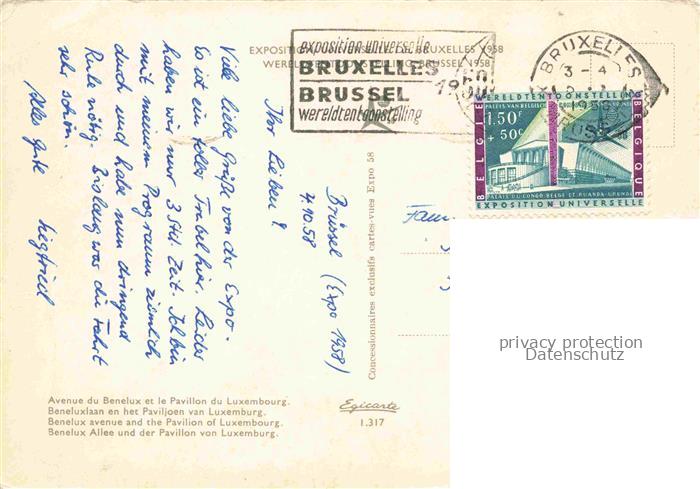 EXPOSITION UNIVERSELLE DE BRUXELLES 1958
WERELDTENTOONSTELLING BRUSSEL 1958
exposition universelle
BRUXELLES
BRUSSEL
wereldtentoonstelling
1958
BRUXELLES
3-4
BRUSSEL
WERELDTENTOONSTELLING
BELGIE
BELGIQUE
1.50F
+ 50c
PALAIS DU CONGO BELGE ET RUANDA-URUNDI
EXPOSITION UNIVERSELLE
Brüssel (Expo 1958)
4.10.58
Ihr Lieben!
Viele liebe Grüße von der Expo.
Es ist ein toller Trubel hier. Leider
haben wir nur 3 Std. Zeit. Ich bin
mit meinem Programm ziemlich
durch und habe nun dringend
Ruhe nötig. Bislang war die Fahrt
sehr schön.
Alles Gute Siegfried
Fam
Concessionnaires exclusifs cartes-vues Expo 58
Avenue du Benelux et le Pavillon du Luxembourg.
Beneluxlaan en het Paviljoen van Luxemburg.
Benelux avenue and the Pavilion of Luxembourg.
Benelux Allee und der Pavillon von Luxemburg.
Egicarte
1.317
privacy protection
Datenschutz